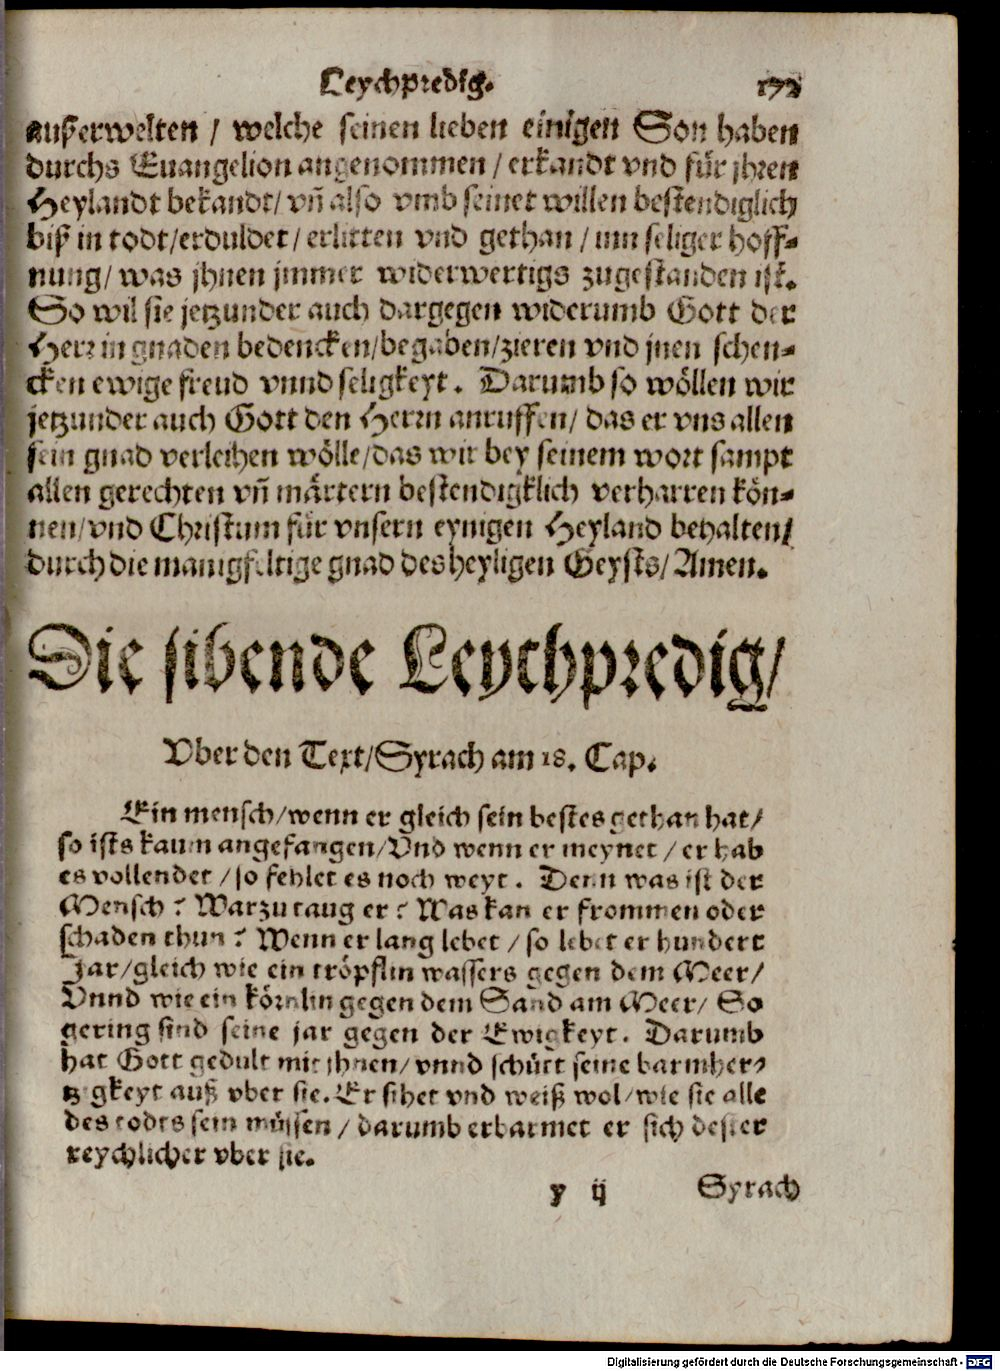 Leychpredig. 172
ausserwelten / welche seinen lieben einigen Son haben
durchs Euangelion angenommen / erkandt vnd für jhren
Heylandt bekandt / vñ also vmb seinet willen bestendiglich
biß in todt / erduldet / erlitten vnd gethan / inn seliger hoff-
nung / was jhnen jmmer widerwertigs zugestanden ist.
So wil sie jetzunder auch dargegen widerumb Gott der
Herr in gnaden bedencken / begaben / zieren vnd jnen schen-
cken ewige freud vnnd seligkeyt. Darumb so wöllen wir
jetzunder auch Gott den Herrn anruffen / das er vns allen
sein gnad verleihen wölle / das wir bey seinem wort sampt
allen gerechten vñ märtern bestendigklich verharren kön-
nen / vnd Christum für vnsern eynigen Heyland behalten /
durch die manigfeltige gnad des heyligen Geysts / Amen.
Die sibende Leychpredig /
Vber den Text / Syrach am 18. Cap.
Ein mensch / wenn er gleich sein bestes gethan hat /
so ists kaum angefangen / Vnd wenn er meynet / er hab
es vollendet / so fehlet es noch weyt. Denn was ist der
Mensch? Warzu taug er? Was kan er frommen oder
schaden thun? Wenn er lang lebet / so lebet er hundert
Jar / gleich wie ein tröpflin wassers gegen dem Meer /
Vnnd wie ein körnlin gegen dem Sand am Meer / So
gering sind seine jar gegen der Ewigkeyt. Darumb
hat Gott gedult mit jhnen / vnnd schütt seine barmher-
tzigkeyt auß vber sie. Er sihet vnd weiß wol / wie sie alle
des todts sein müssen / darumb erbarmet er sich dester
reychlicher vber sie.
y ij Syrach
Digitalisierung gefördert durch die Deutsche Forschungsgemeinschaft - DFG